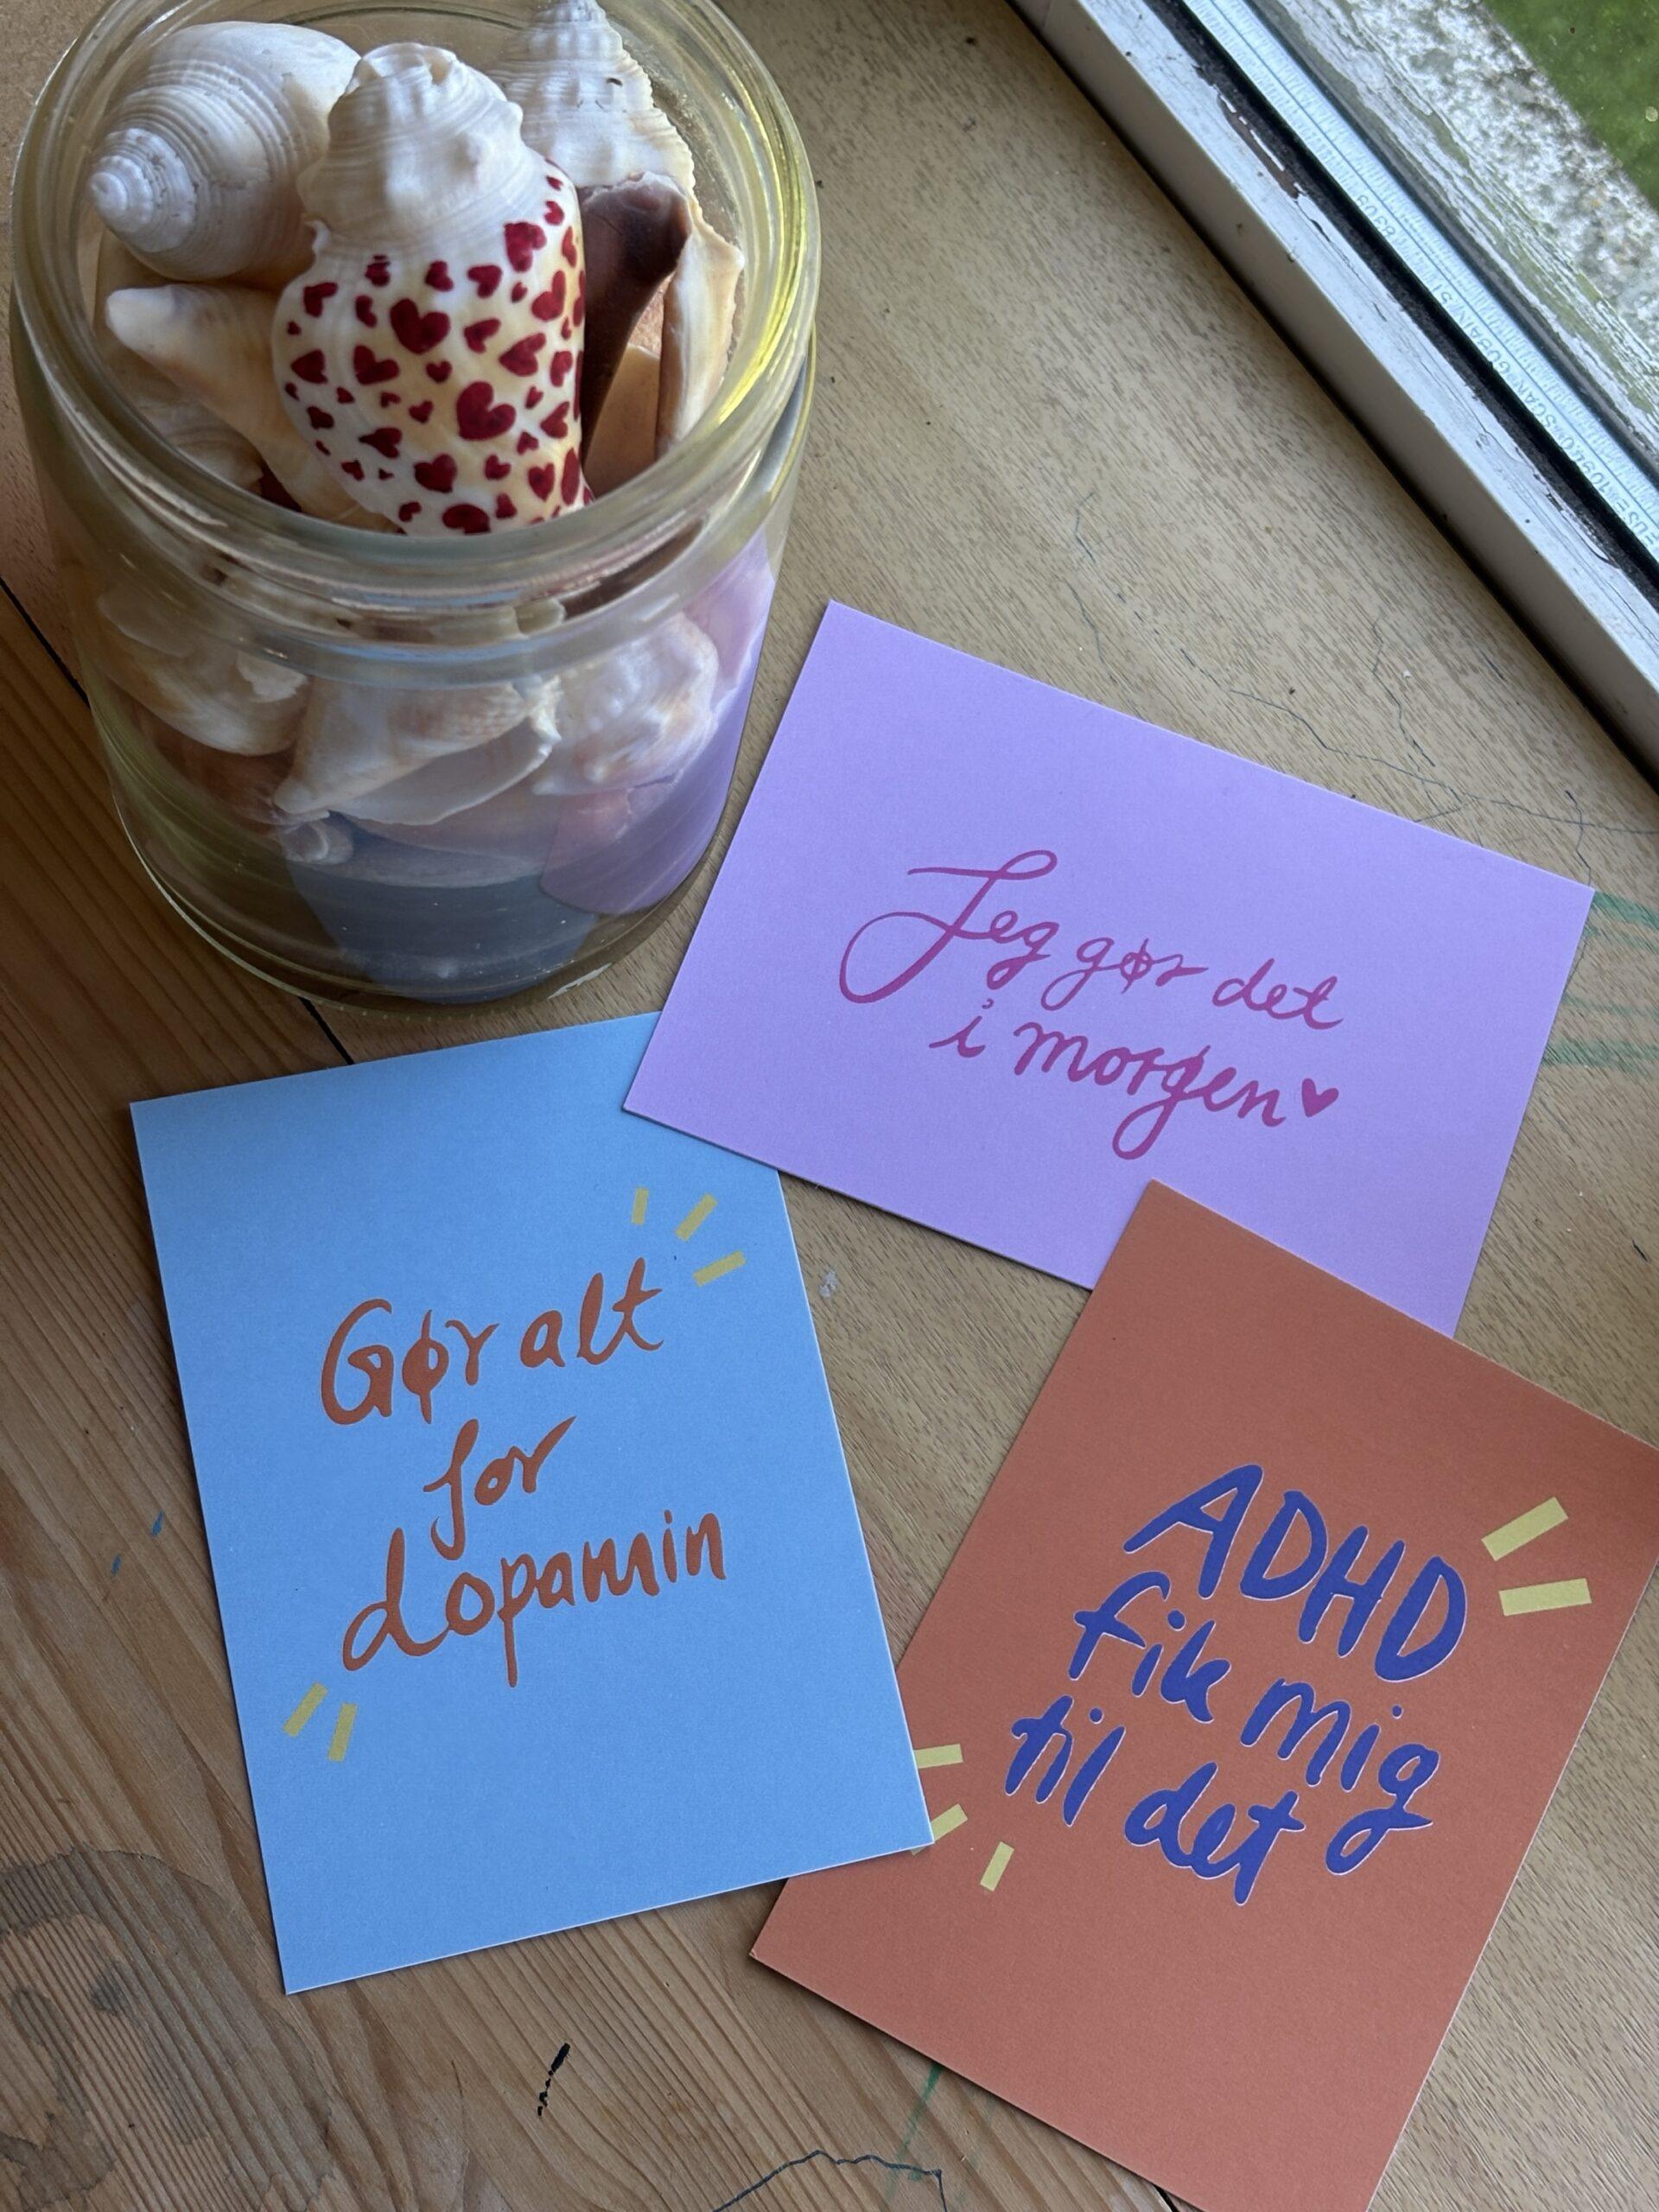 Jeg gør det
i morgen♥
Gør alt
for
dopamin
ADHD
fik mig
til det